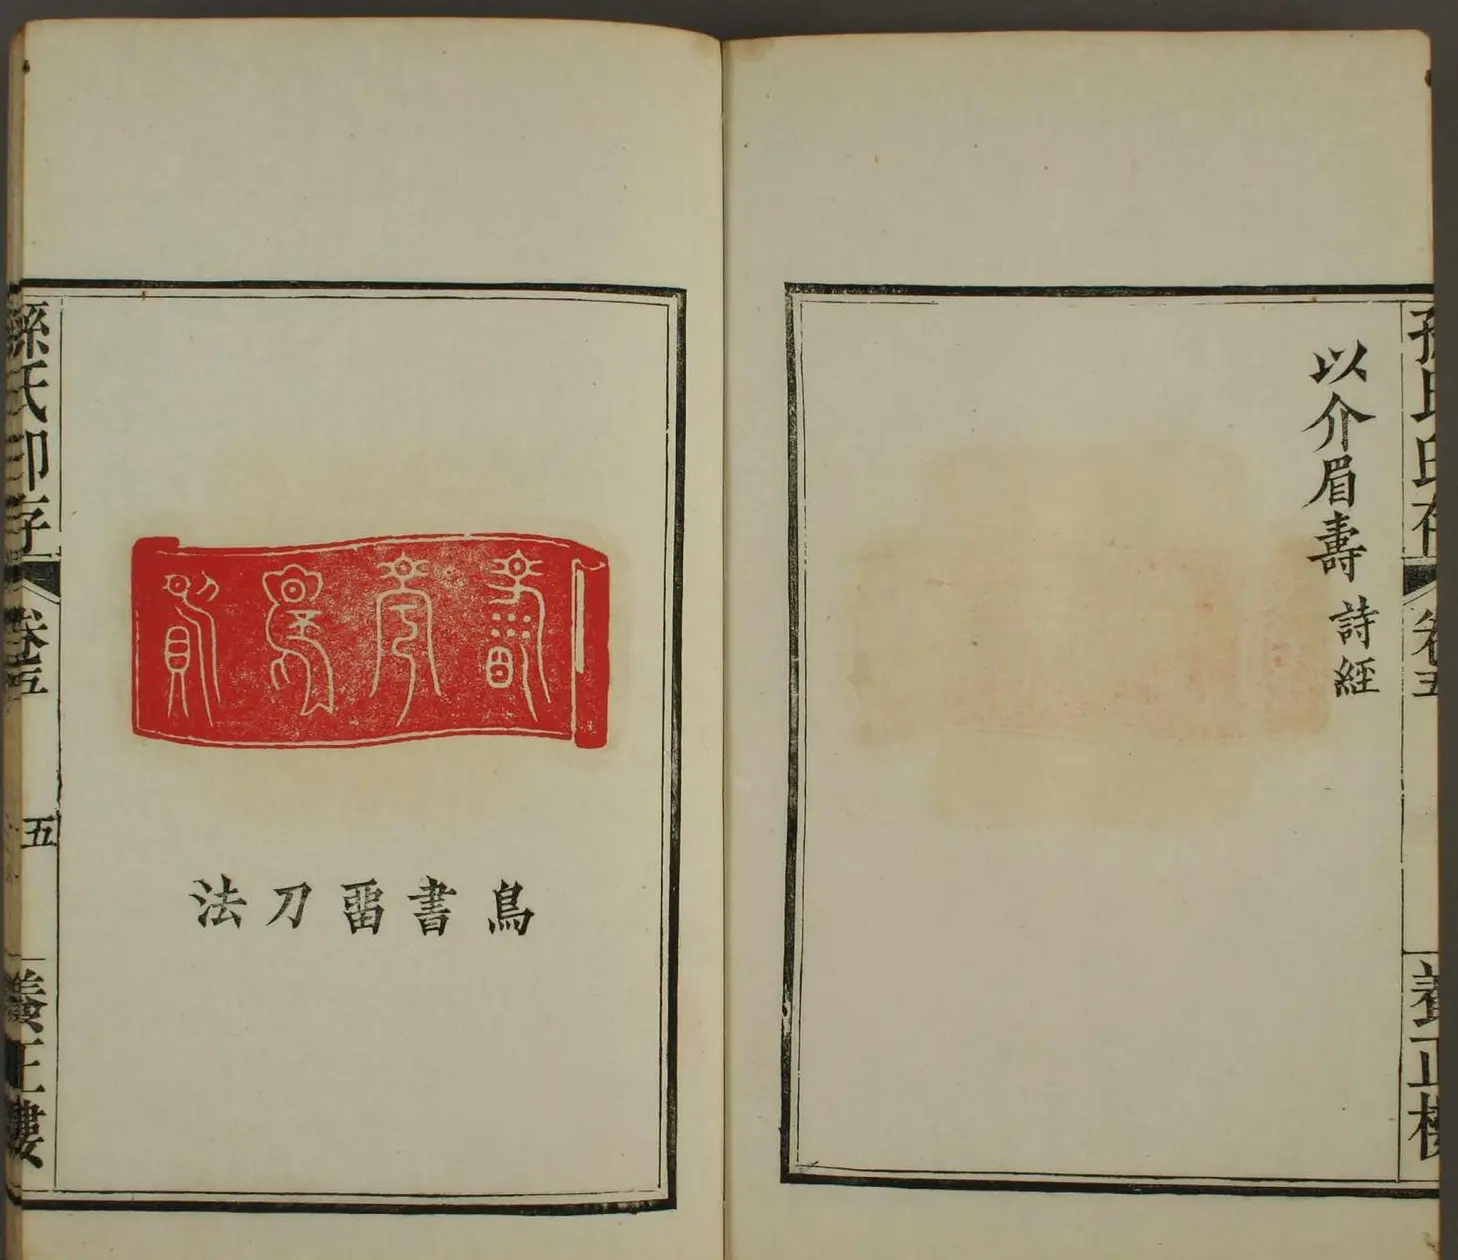 孫氏印存 卷五 養正樓
以介眉壽 詩經
鳥書畱刀法
孫氏印存 卷五 五 養正樓